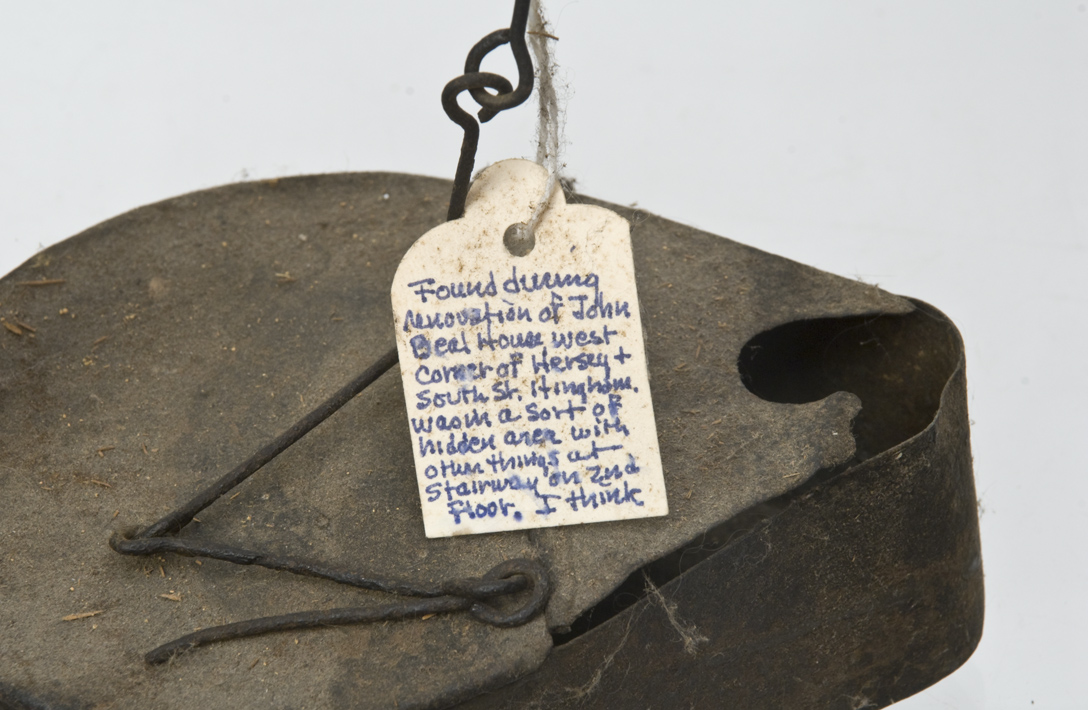 Found during
renovation of John
Beal House west
Corner of Hersey +
South St. Hingham.
was in a sort of
hidden area with
other things at
Stairway on 2nd
Floor. I think